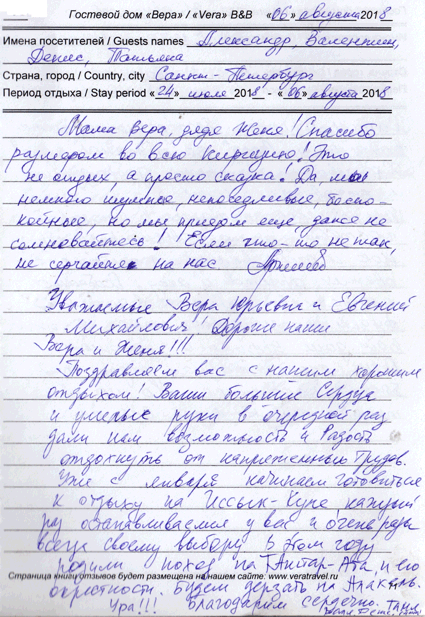 Гостевой дом «Вера» / «Vera» B&B «06» августа 2018
Имена посетителей / Guests names Александр, Валентин,
Денис, Татьяна
Страна, город / Country, city Санкт-Петербург
Период отдыха / Stay period «24» июля 2018 - «06» августа 2018
Мама Вера, дядя Женя! Спасибо
размером во всю Киргизию! Это
не отдых, а просто сказка! Да, мы
немного шумные, непоседливые, беспо-
койные, но мы приедем еще, даже не
сомневайтесь! Если что-то не так,
не серчайте на нас
Уважаемые Вера Юрьевна и Евгений
Михайлович! Дорогие наши
Вера и Женя!!!
Поздравляем вас с нашим хорошим
отдыхом! Ваши большие Сердца
и умелые руки в очередной раз
дали нам возможность и Радость
отдохнуть от напряженных Трудов.
Уже с января начинаем готовиться
к отдыху на Иссык-Куле каждый
раз останавливаемся у вас и очень рады
всегда своему выбору. В этом году
ходили поход на и его
Страница книги отзывов будет размещена на нашем сайте: www.veratravel.ru
окрестности. Будем дерзать на Алакуль.
Ура!!! Благодарим сердечно.